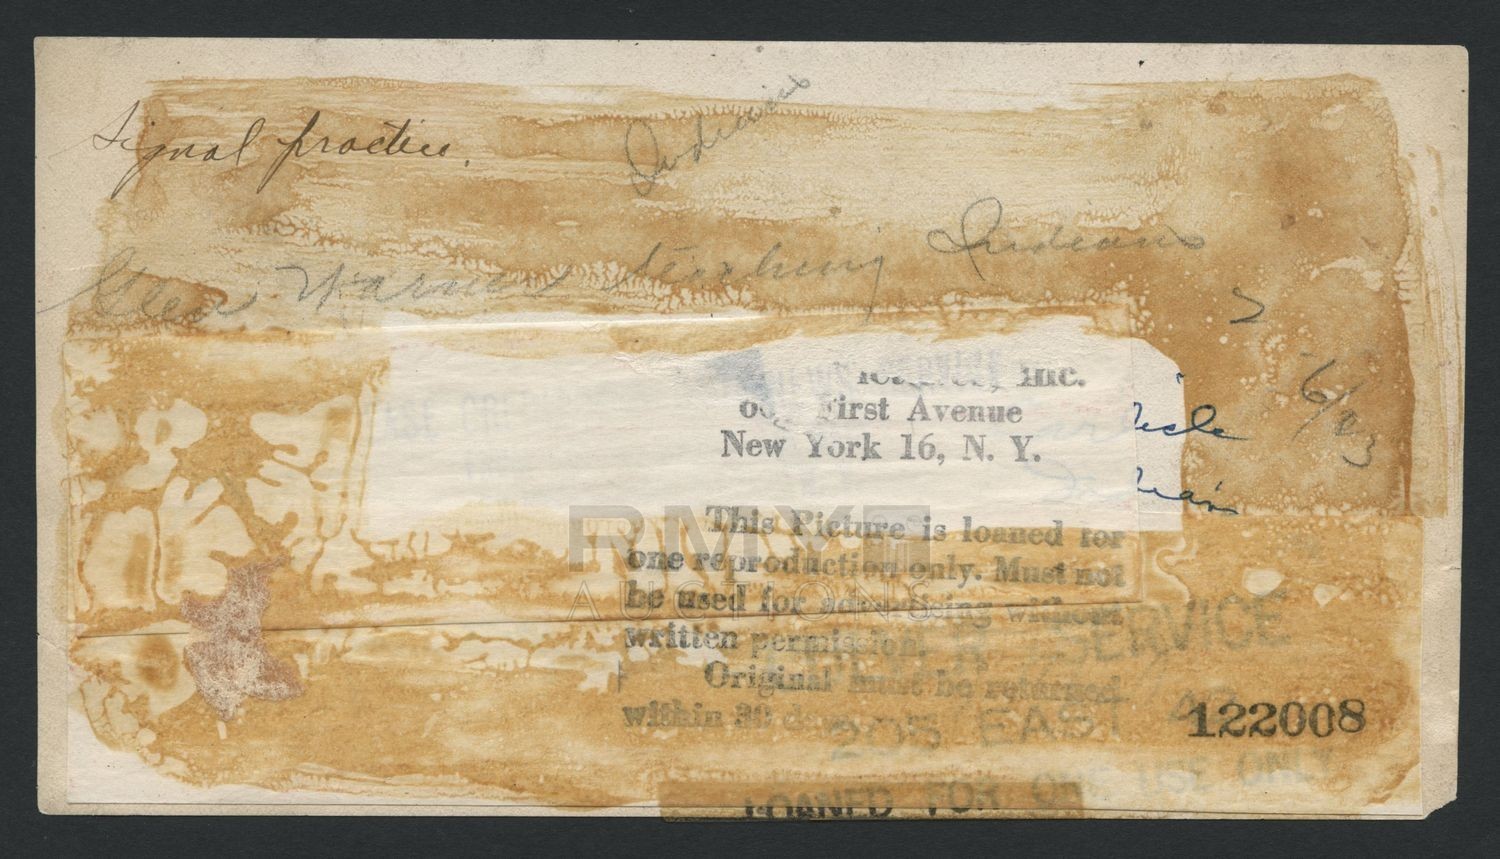 Signal practice.
Indians
Glen Warner teaching Indians
6/03
Inc.
First Avenue
New York 16, N. Y.
This Picture is loaned for
one reproduction only. Must not
be used for advertising without
written permission.
Original must be returned
within 30 days
SERVICE
205 EAST 42
122008
LOANED FOR ONE USE ONLY
RMY
AUCTIONS